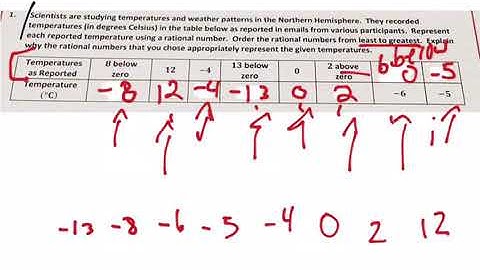 1. Scientists are studying temperatures and weather patterns in the Northern Hemisphere. They recorded
temperatures (in degrees Celsius) in the table below as reported in emails from various participants. Represent
each reported temperature using a rational number. Order the rational numbers from least to greatest. Explain
why the rational numbers that you chose appropriately represent the given temperatures.
Temperatures as Reported 8 below zero 12 -4 13 below zero 0 2 above zero 6 below 0 -5
Temperature (°C) -8 12 -4 -13 0 2 -6 -5
-13 -8 -6 -5 -4 0 2 12